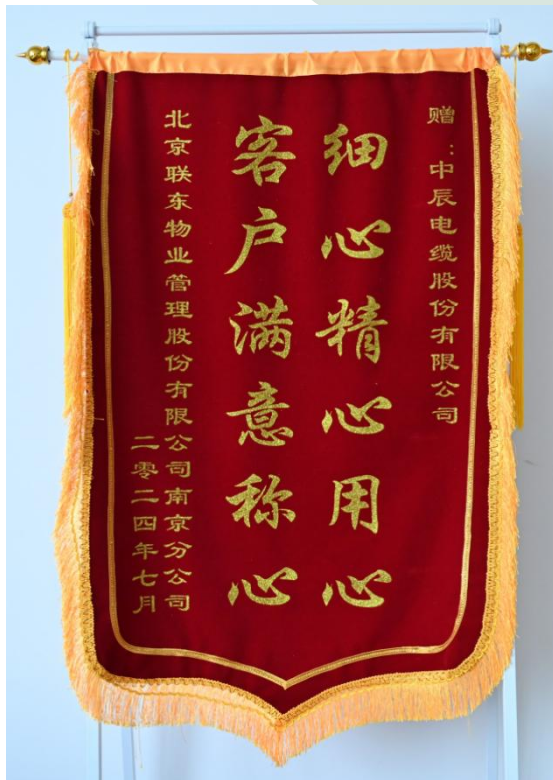 赠：中辰电缆股份有限公司
细心精心用心
客户满意称心
北京联东物业管理股份有限公司南京分公司
二零二四年七月